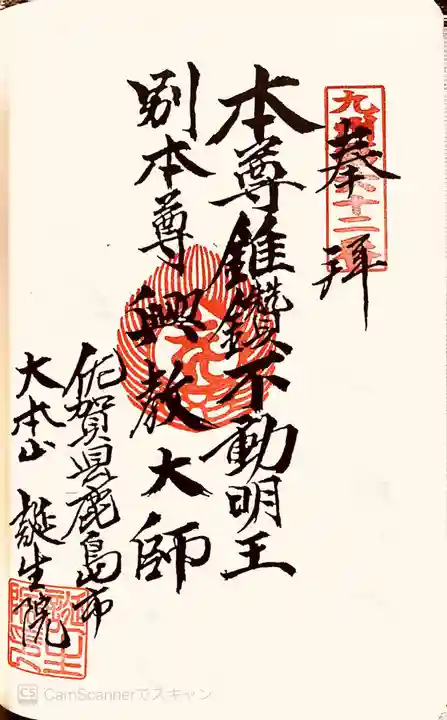 奉拝
本尊錐鑽不動明王
別本尊興教大師
佐賀県鹿島市
大本山 誕生院
CS CamScannerでスキャン